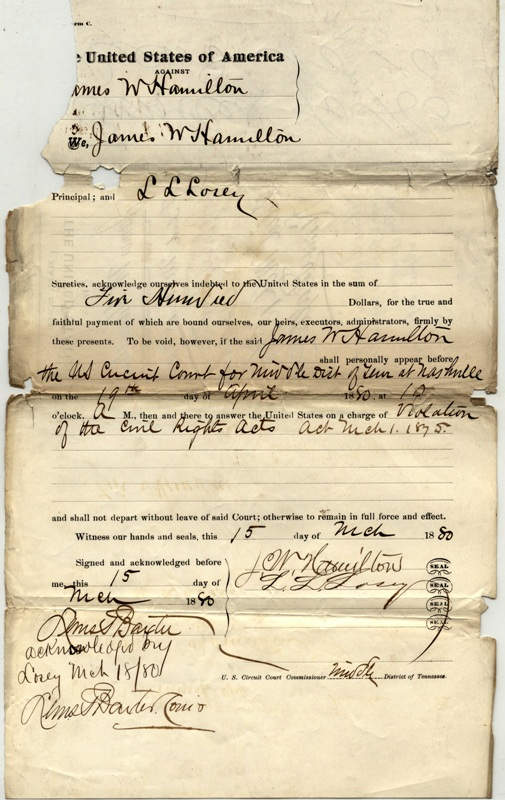 rm C.
e United States of America
AGAINST
ames W Hamilton
We, James W Hamilton
Principal; and L L Losey
Sureties, acknowledge ourselves indebted to the United States in the sum of
Five Hundred Dollars, for the true and
faithful payment of which are bound ourselves, our heirs, executors, administrators, firmly by
these presents. To be void, however, if the said James W Hamilton
shall personally appear before
the US Circuit Court for Middle Dist of Tenn at Nashville
on the 19th day of April 1880, at 10
o'clock, A M., then and there to answer the United States on a charge of Violation
of the Civil Rights Acts Act Mch 1. 1875.
and shall not depart without leave of said Court; otherwise to remain in full force and effect.
Witness our hands and seals, this 15 day of Mch 1880
Signed and acknowledged before
me, this 15 day of
Mch 1880
J W Hamilton SEAL
L. L. Losey SEAL
SEAL
SEAL
Baxter
acknowledged by
Losey Mch 18/80
Baxter Com
U. S. Circuit Court Commissioner Middle District of Tennessee.